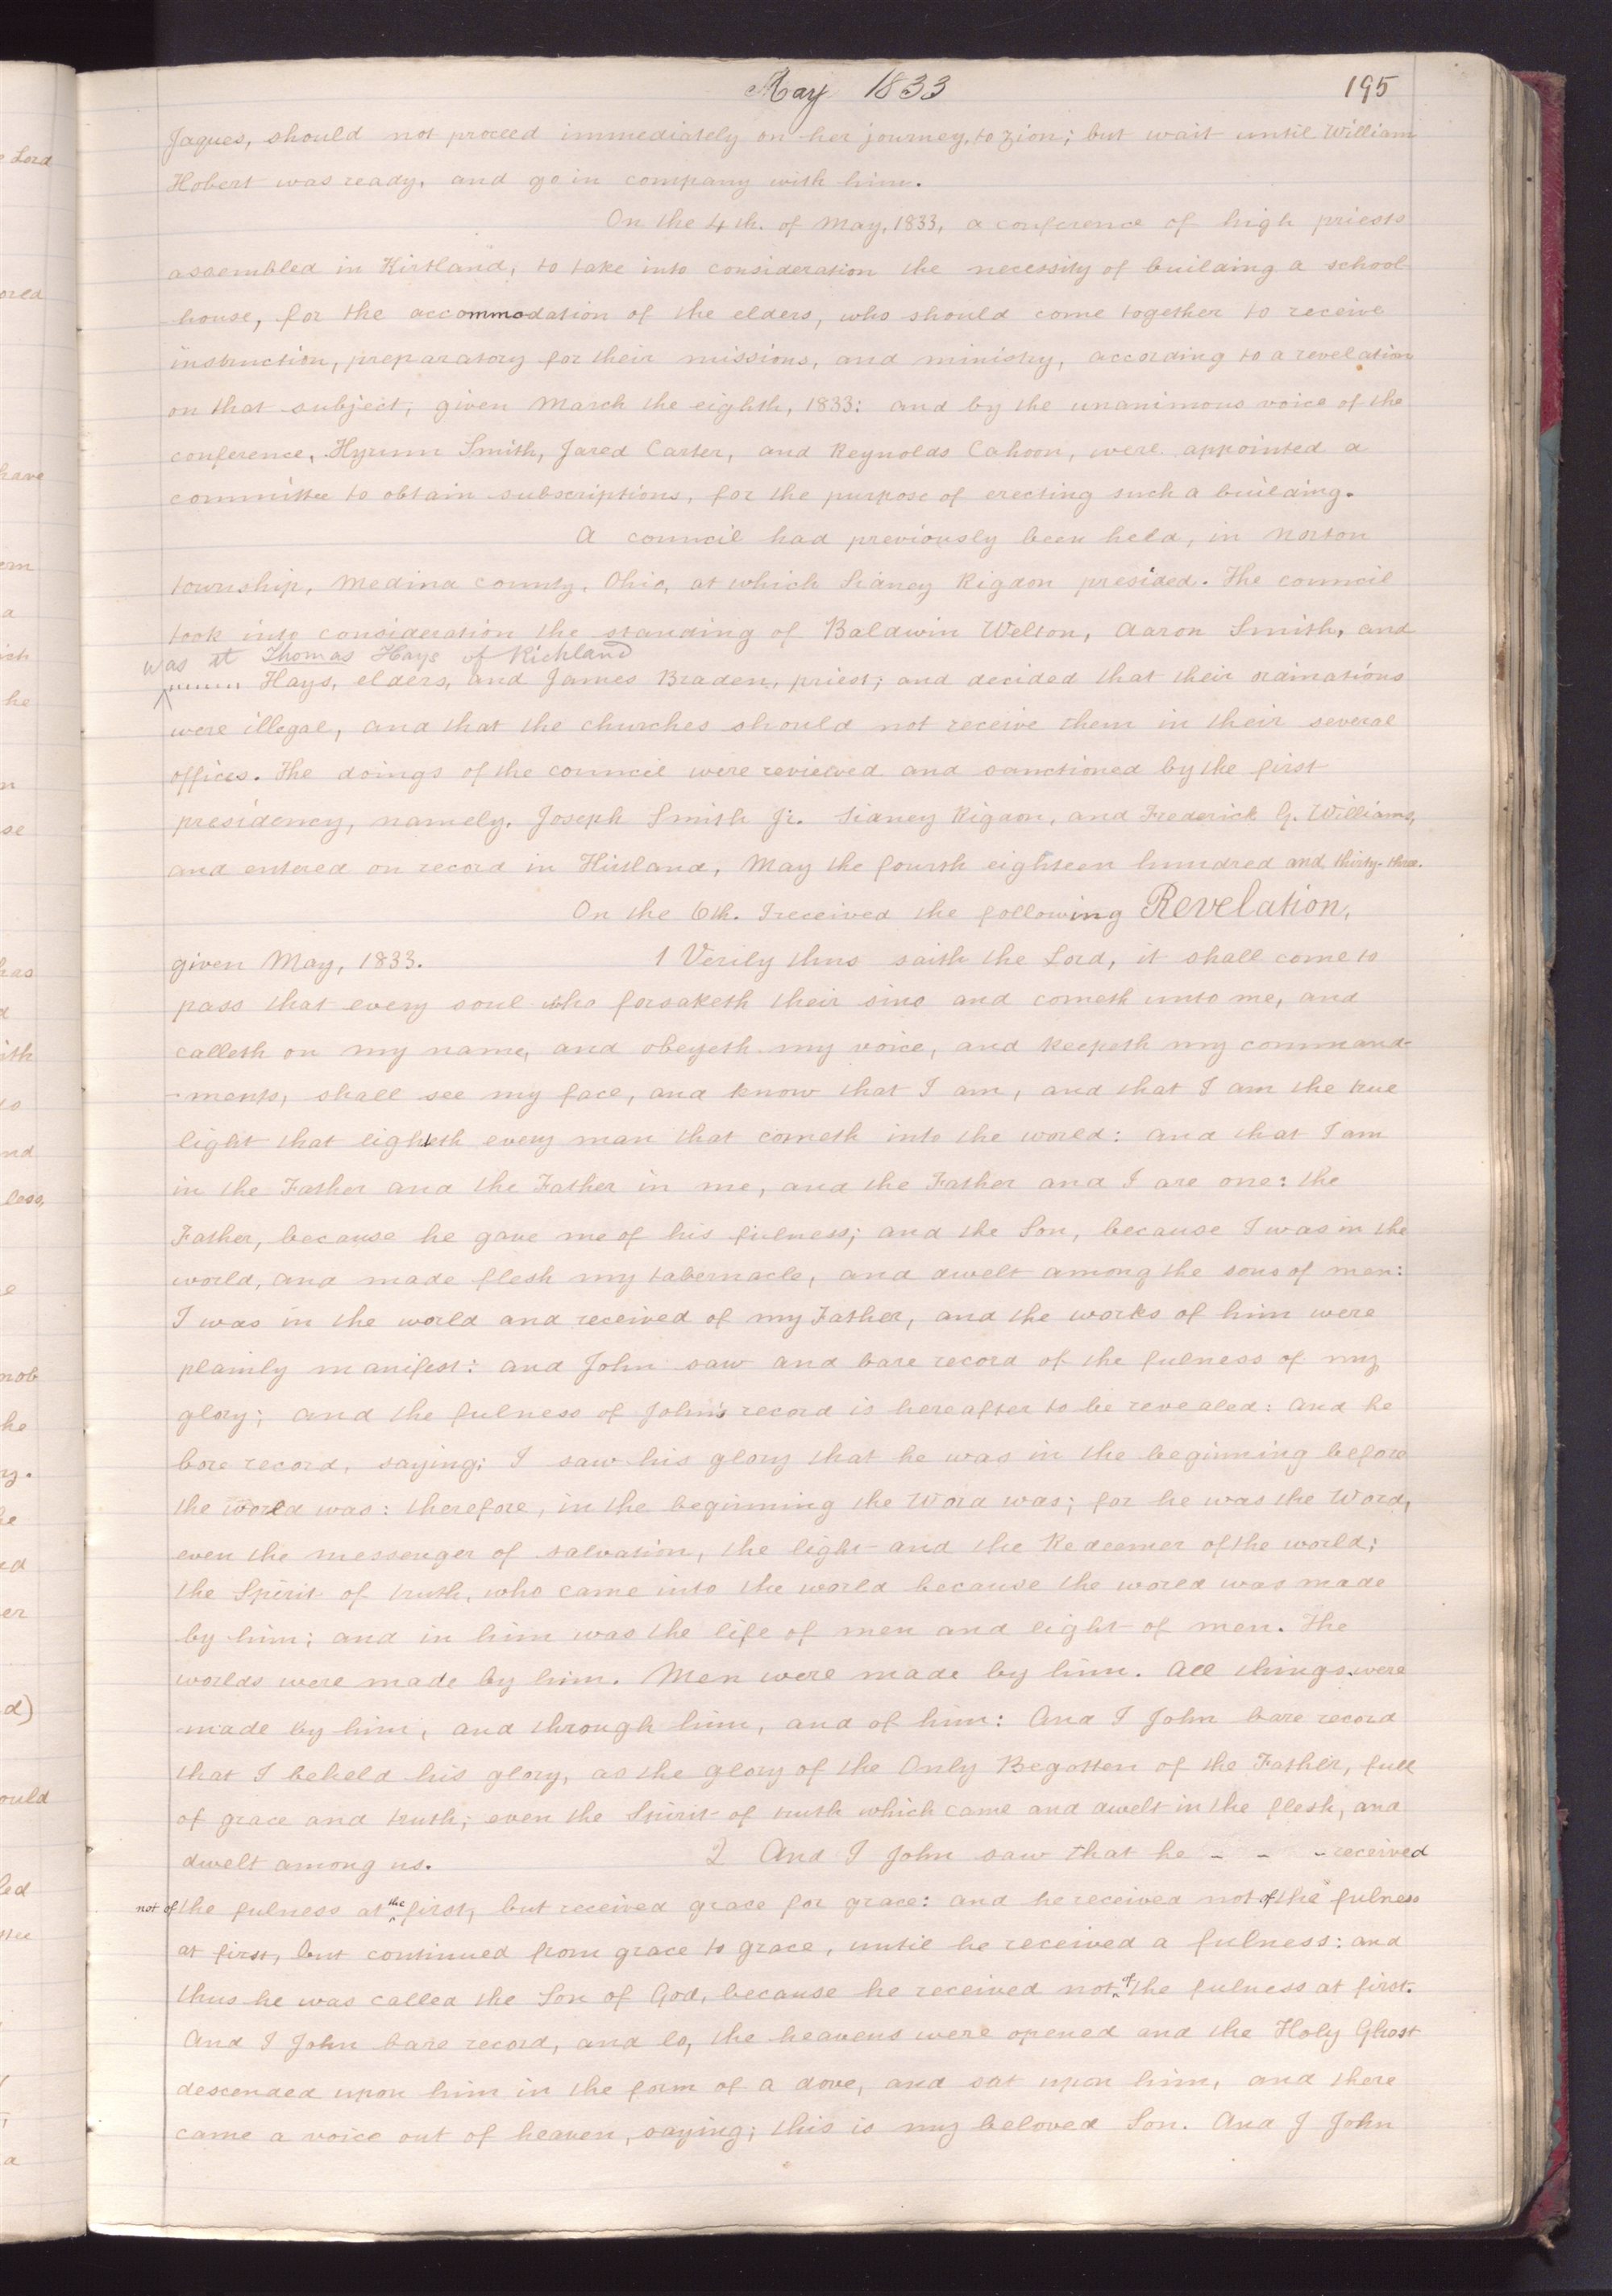 May 1833
195
Jaques, should not proceed immediately on her journey, to Zion; but wait until William
Hobert was ready, and go in company with him.
On the 4th. of May, 1833, a conference of high priests
assembled in Kirtland, to take into consideration the necessity of building a school
house, for the accommodation of the elders, who should come together to receive
instruction, preparatory for their missions, and ministry, according to a revelation
on that subject, given March the eighth, 1833: and by the unanimous voice of the
conference, Hyrum Smith, Jared Carter, and Reynolds Cahoon, were appointed a
committee to obtain subscriptions, for the purpose of erecting such a building.
A council had previously been held, in Norton
township, Medina county, Ohio, at which Sidney Rigdon presided. The council
took into consideration the standing of Baldwin Welton, Aaron Smith, and
was it Thomas Hays of Richland
Hays, elders, and James Braden, priest; and decided that their ordinations
were illegal, and that the churches should not receive them in their several
offices. The doings of the council were reviewed and sanctioned by the first
presidency, namely, Joseph Smith Jr. Sidney Rigdon, and Frederick G. Williams,
and entered on record in Kirtland, May the fourth eighteen hundred and thirty-three.
On the 6th. I received the following Revelation,
given May, 1833. 1 Verily thus saith the Lord, it shall come to
pass that every soul who forsaketh their sins and cometh unto me, and
calleth on my name, and obeyeth my voice, and keepeth my command-
-ments, shall see my face, and know that I am, and that I am the true
light that lighteth every man that cometh into the world: and that I am
in the Father and the Father in me, and the Father and I are one: the
Father, because he gave me of his fulness; and the Son, because I was in the
world, and made flesh my tabernacle, and dwelt among the sons of men:
I was in the world and received of my Father, and the works of him were
plainly manifest: and John saw and bare record of the fulness of my
glory; and the fulness of John's record is hereafter to be revealed: and he
bore record, saying; I saw his glory that he was in the beginning before
the world was: therefore, in the beginning the Word was; for he was the Word,
even the messenger of salvation, the light and the Redeemer of the world;
the Spirit of truth, who came into the world because the world was made
by him; and in him was the life of men and light of men. The
worlds were made by him. Men were made by him. All things were
made by him, and through him, and of him: And I John bare record
that I beheld his glory, as the glory of the Only Begotten of the Father, full
of grace and truth; even the Spirit of truth which came and dwelt in the flesh, and
dwelt among us. 2 And I John saw that he - - - received
not of the fulness at the first, but received grace for grace: and he received not of the fulness
at first, but continued from grace to grace, until he received a fulness: and
thus he was called the Son of God, because he received not of the fulness at first.
And I John bare record, and lo, the heavens were opened and the Holy Ghost
descended upon him in the form of a dove, and sat upon him, and there
came a voice out of heaven, saying; this is my beloved Son. And I John